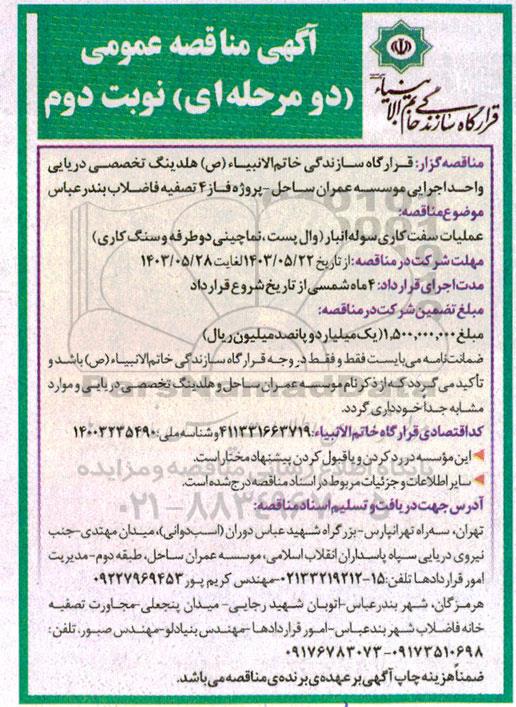 آگهی مناقصه عمومی
(دو مرحله‌ای) نوبت دوم
قرارگاه سازندگی خاتم الانبیاء
مناقصه‌گزار: قرارگاه سازندگی خاتم‌الانبیاء (ص) هلدینگ تخصصی دریایی
واحد اجرایی موسسه عمران ساحل -پروژه فاز ۴ تصفیه فاضلاب بندرعباس
موضوع مناقصه:
عملیات سفت کاری سوله انبار (وال پست، نماچینی دوطرفه و سنگ کاری)
مهلت شرکت در مناقصه: از تاریخ ۱۴۰۳/۰۵/۲۲ لغایت ۱۴۰۳/۰۵/۲۸
مدت اجرای قرارداد: ۴ ماه شمسی از تاریخ شروع قرارداد
مبلغ تضمین شرکت در مناقصه:
مبلغ ۱,۵۰۰,۰۰۰,۰۰۰ (یک میلیارد و پانصد میلیون ریال)
ضمانت‌نامه می‌بایست فقط و فقط در وجه قرارگاه سازندگی خاتم‌الانبیاء (ص) باشد و
تأکید می‌گردد که از ذکر نام موسسه عمران ساحل و هلدینگ تخصصی دریایی و موارد
مشابه جداً خودداری گردد.
کد اقتصادی قرارگاه خاتم‌الانبیاء: ۴۱۱۳۳۱۶۶۳۷۱۹ و شناسه ملی: ۱۴۰۰۳۲۳۵۴۹۰
این مؤسسه در رد کردن و یا قبول کردن پیشنهاد مختار است.
سایر اطلاعات و جزئیات مربوط در اسناد مناقصه درج شده است.
آدرس جهت دریافت و تسلیم اسناد مناقصه:
تهران، سه‌راه تهرانپارس-بزرگراه شهید عباس دوران (اسب‌دوانی)، میدان مهتدی-جنب
نیروی دریایی سپاه پاسداران انقلاب اسلامی، موسسه عمران ساحل، طبقه دوم-مدیریت
امور قراردادها تلفن: ۱۵-۰۲۱۳۳۲۱۹۲۱۲-مهندس کریم پور ۰۹۲۲۷۹۶۹۴۵۳
هرمزگان، شهر بندرعباس-اتوبان شهید رجایی- میدان پنجعلی-مجاورت تصفیه
خانه فاضلاب شهر بندعباس-امور قراردادها -مهندس بنیادلو-مهندس صبور، تلفن:
۰۹۱۷۳۵۱۰۶۹۸-۰۹۱۷۶۷۸۳۰۷۳
ضمناً هزینه چاپ آگهی بر عهده‌ی برنده‌ی مناقصه می‌باشد.